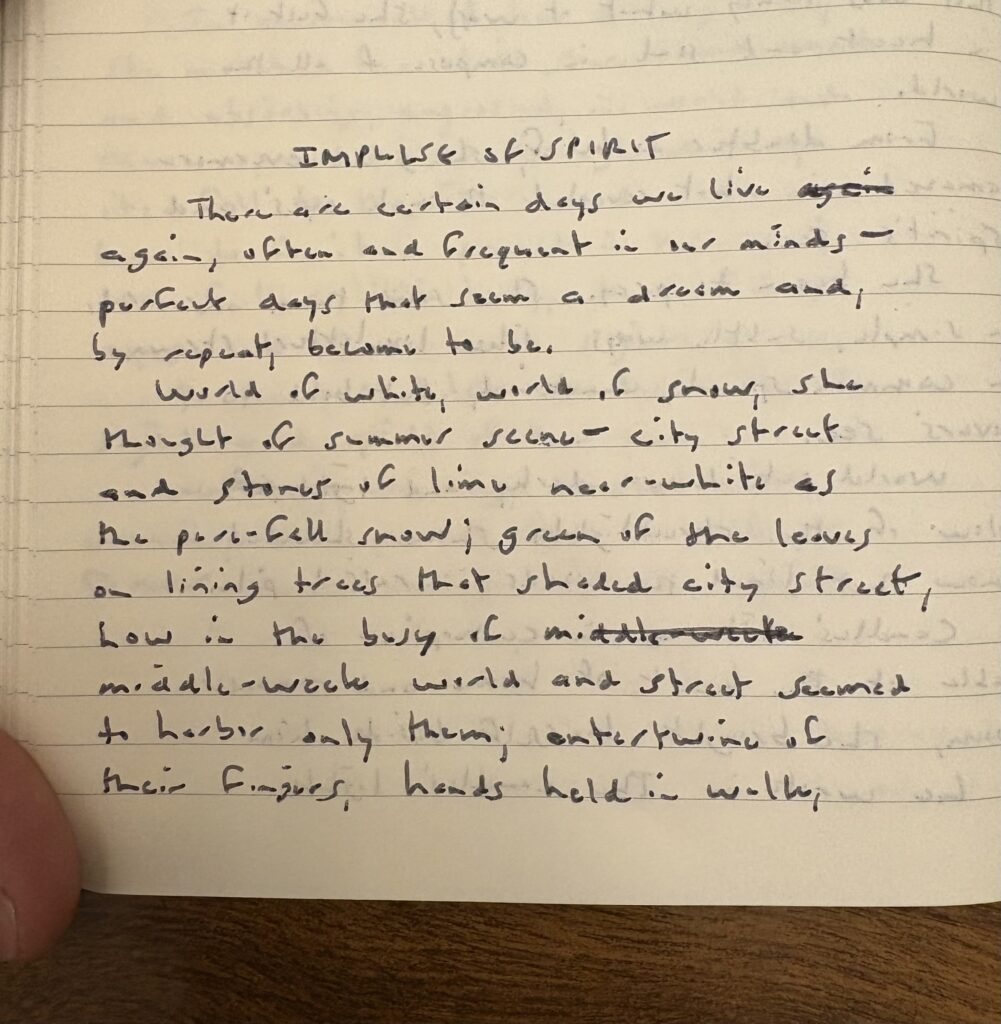 IMPULSE OF SPIRIT
There are certain days we live again
again, often and frequent in our minds—
perfect days that seem a dream and,
by repeat, become to be.
World of white, world of snow, she
thought of summer scene— city street
and stones of lime near-white as
the pure-fall snow; green of the leaves
on lining trees that shaded city street,
how in the busy of middle-week
middle-week world and street seemed
to harbor only them; entertwine of
their fingers, hands held in walk,